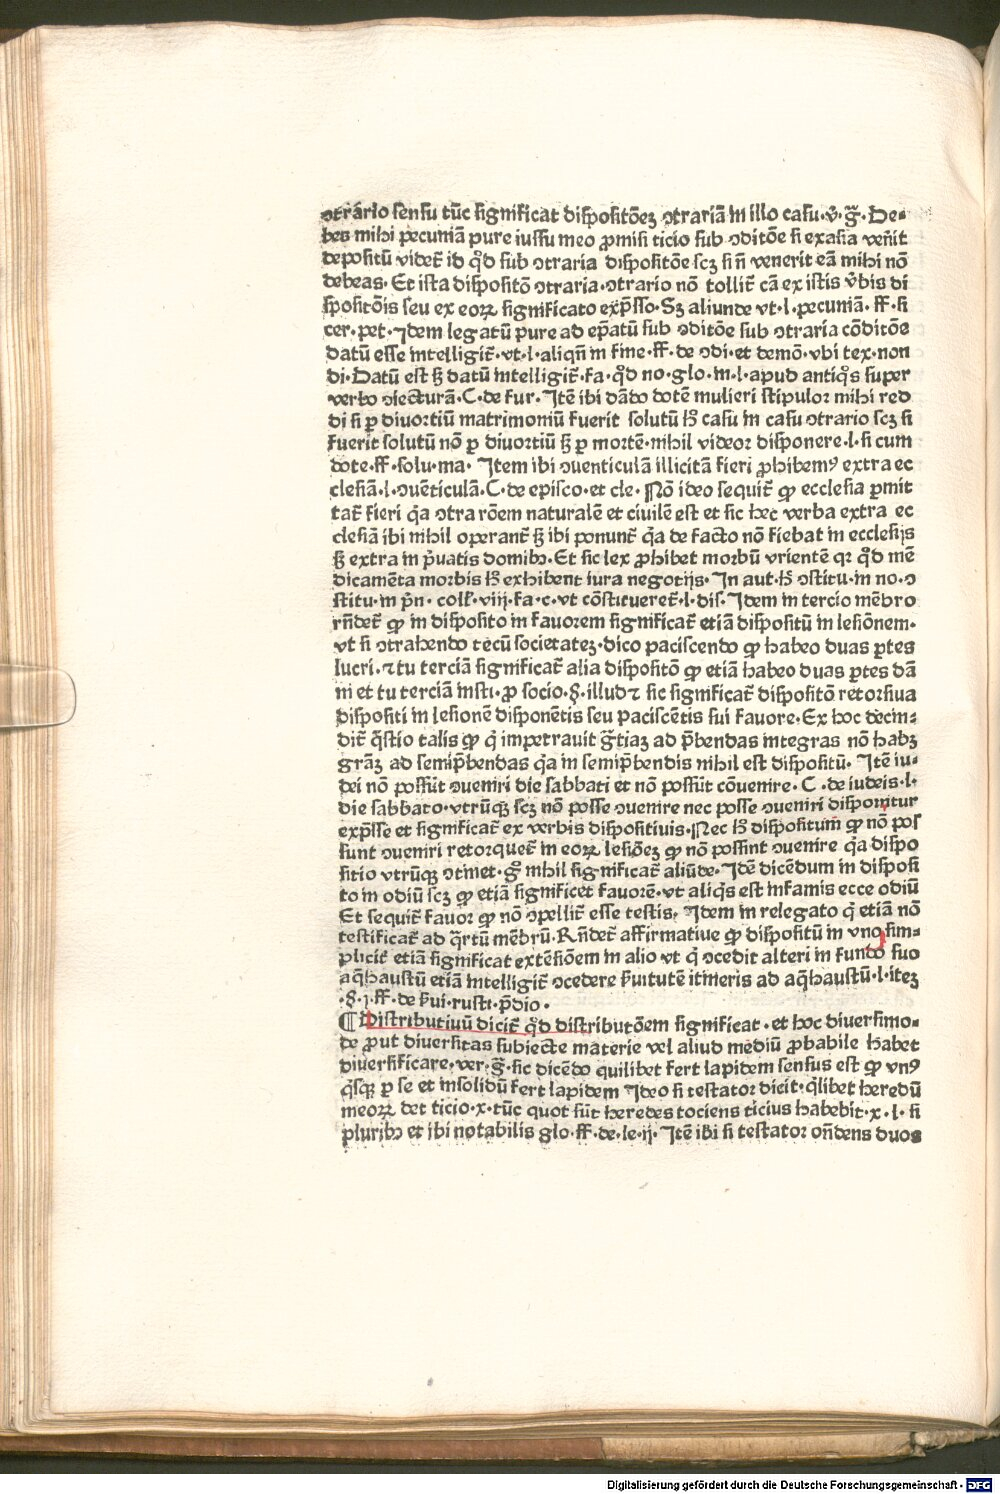 ↄtrário sensu tūc significat dispositōeꝫ ↄtrariā in illo casu·v̄·g̃· De⸗
bes mihi pecuniā pure iussu meo ꝓmisi ticio sub ↄditōe si ex asia vēit
depositū videt̄ id qd̄ sub ↄtraria dispositōe scꝫ si n̄ venerit eā mihi nō
debeas· Et ista dispositō ↄtraria·ↄtrario nō tollit̄ cā ex istis v̄bis di
spositōis seu ex eoꝝ significato exp̄sso· Sꝫ aliunde vt·l·pecuniā· ff·si
cer·pet· Idem legatū pure ad ep̄atū sub ↄditōe sub ↄtraria cōditōe
datū esse intelligit̄·vt·l·aliqn̄ in fine·ff·de ↄdi·et demō·vbi tex·non
di·Datū est sꝫ datū intelligit̄·fa·qd̄ no·glo·in·l·apud antiq̄s super
verbo ↄiecturā·C·de fur· Itē ibi dādo dotē mulieri stipulor mihi red
di si ꝑ diuortiū matrimoniū fuerit solutū hͦ casu in casu ↄtrario scꝫ si
fuerit solutū nō ꝑ diuortiū sꝫ ꝑ mortē·nihil videor disponere·l·si cum
dote·ff·solu·ma· Item ibi ↄuenticulā illicitā fieri ꝓhibemꝰ extra ec
clesiā·l·ↄuēticulā·C·de episco·et cle· Nō ideo sequit̄ ꝙ ecclesia ꝑmit
tat̄ fieri q̄a ↄtra rōem naturalē et ciuilē est et sic hec verba extra ec
clesiā ibi nihil operant̄ sꝫ ibi ponunt̄ q̄a de facto nō fiebat in ecclesijs
sꝫ extra in p̄uatis domibꝫ· Et sic lex ꝓhibet morbū vrientē qꝛ qd̄ me
dicamēta morbis hͦ exhibent iura negotijs· In aut·hͦ ↄstitu·in no·ↄ
stitu·in pn̄· coll̄·viij·fa·c·vt cōstitueret̄·l·dis· Idem in tercio mēbro
rn̄det̄ ꝙ in disposito in fauorem significat̄ etiā dispositū in lesiōnem·
vt si ↄtrahendo tecū societateꝫ·dico paciscendo ꝙ habeo duas ꝑtes
lucri·⁊ tu terciā significat̄ alia dispositō ꝙ etiā habeo duas ꝑtes dā
ni et tu terciā insti·ꝓ socio·§·illud⁊ sic significat̄ dispositō retorsiua
dispositi in lesionē disponētis seu paciscētis sui fauore· Ex hoc decin⸗
dit̄ q̄stio talis ꝙ q̇ impetrauit g̃tiaꝫ ad p̄bendas integras nō habꝫ
grāꝫ ad semip̄bendas q̄a in semip̄bendis nihil est dispositū· Itē iu⸗
dei nō possūt ↄueniri die sabbati et nō possūt cōuenire· C·de iudeis·l·
die sabbato·vtrūqꝫ scꝫ nō posse ↄuenire nec posse ↄueniri disponitur
exp̄sse et significat̄ ex verbis dispositiuis· Nec hͦ dispositum ꝙ nō pos
sunt ↄueniri retorquet̄ in eoꝝ lesiōeꝫ ꝙ nō possint ↄuenire q̄a dispo
sitio vtrūqꝫ ↄtinet·gͦ nihil significat̄ aliūde· Idē dicēdum in disposi
to in odiū scꝫ ꝙ etiā significet fauorē·vt aliq̄s est infamis ecce odiū
Et sequit̄ fauor ꝙ nō ↄpellit̄ esse testis· Idem in relegato q̇ etiā nō
testificat̄ ad q̄rtū mēbrū· Rn̄det̄ affirmatiue ꝙ dispositū in vno sim⸗
plicit̄ etiā significat extēsiōem in alio vt q̇ ↄcedit alteri in fundo suo
aq̄haustū etiā intelligit̄ ↄcedere s̄uitutē itineris ad aq̄haustū·l·iteꝫ
·§·j·ff·de s̄ui·rusti·p̄dio·
¶ Distributiuū dicit̄ qd̄ distributōem significat·et hoc diuersimo⸗
de ꝓut diuersitas subiecte materie vel aliud mediū ꝓbabile habet
diuersificare·ver·g̃·sic dicēdo quilibet fert lapidem sensus est ꝙ vnꝰ
q̄sqꝫ ꝑ se et insolidū fert lapidem Ideo si testator dicit·q̄libet heredū
meoꝝ det ticio·x·tūc quot sūt heredes tociens ticius habebit·x·l·si
pluribꝫ et ibi notabilis glo·ff·de·le·ij· Itē ibi si testator on̄dens duos
Digitalisierung gefördert durch die Deutsche Forschungsgemeinschaft - DFG